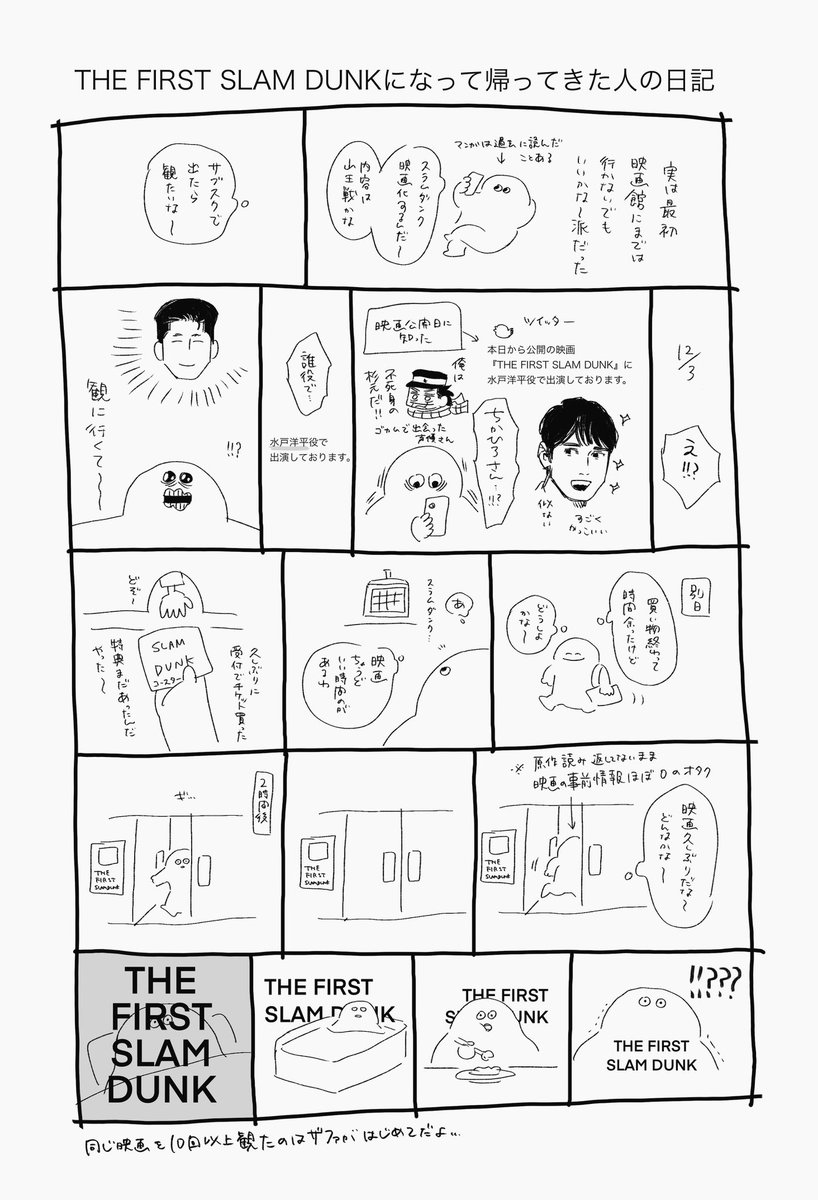 THE FIRST SLAM DUNKになって帰ってきた人の日記
実は最初
映画館にまでは
行かないでも
いいかな〜派だった
マンガは過去に読んだ
ことある
スラムダンク
映画化するんだ〜
内容は
山王戦かな
サブスクで
出たら
観たいな〜
12/3
え!!?
ツイッター
映画公開日に
知った
本日から公開の映画
『THE FIRST SLAM DUNK』に
水戸洋平役で出演しております。
俺は
不死身の
杉元だ!!
ゴカムで出会った
声優さん
ちかひろさん…!!?
すごく
かっこいい
似ない
誰役で…
水戸洋平役で
出演しております。
!!?
観に行くて〜〜〜
別日
買い物終わって
時間余ったけど
どうしよ
かな〜
あ
スラムダンク…
映画
ちょうど
いい時間のが
あるわ
久しぶりに
受付でチケット買った
どぞ〜
SLAM
DUNK
コースター
特典まだあったんだ
やった〜
※ 原作読み返してないまま
映画の事前情報ほぼ0のオタク
映画久しぶりだな〜
どんなかな〜
THE
FIRST
SLAMDUNK
THE
FIRST
SLAMDUNK
2時間後
ギ…
THE
FIRST
SLAMDUNK
!!???
THE FIRST
SLAM DUNK
THE FIRST
SLAM DUNK
THE FIRST
SLAM DUNK
THE
FIRST
SLAM
DUNK
同じ映画を10回以上観たのはザファがはじめてだよ…